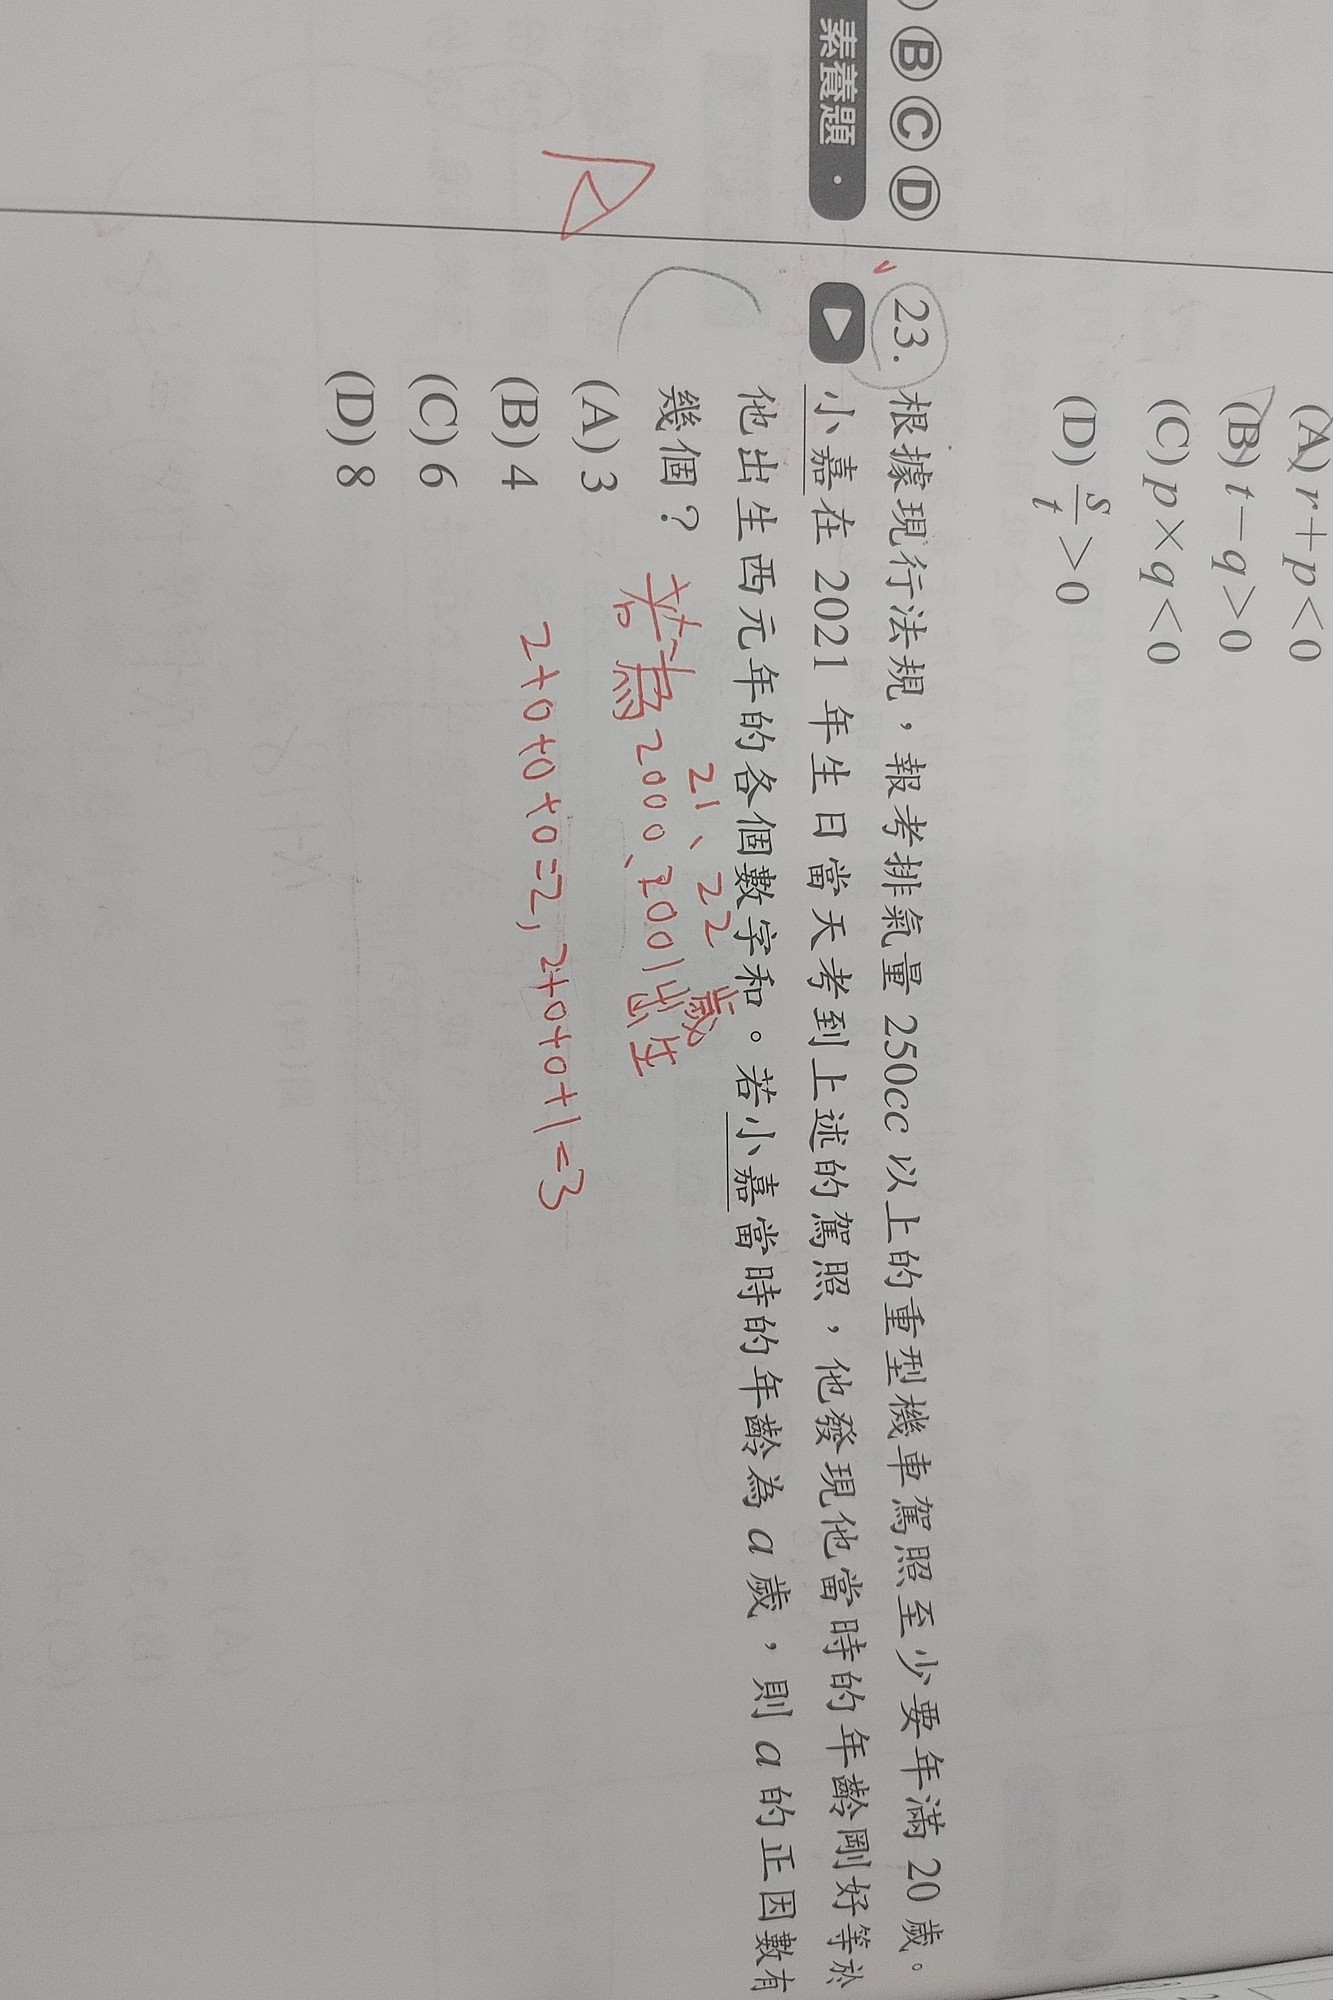 (A) r+p<0
(B) t-q>0
(C) p×q<0
(D) s/t>0
Ⓑ Ⓒ Ⓓ
素養題
23. 根據現行法規，報考排氣量 250cc 以上的重型機車駕照至少要年滿 20 歲。
小嘉在 2021 年生日當天考到上述的駕照，他發現他當時的年齡剛好等於
他出生西元年的各個數字和。若小嘉當時的年齡為 a 歲，則 a 的正因數有
幾個？
21、22 歲
若為 2000、2001 出生
(A) 3
2+0+0+0=2, 2+0+0+1=3
(B) 4
(C) 6
(D) 8